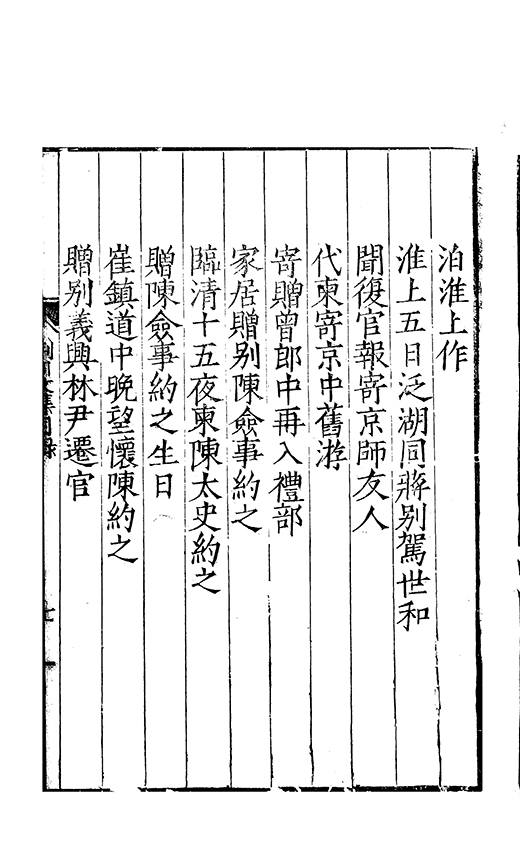 泊淮上作
淮上五日泛湖同蔣别駕世和
聞復官報寄京師友人
代柬寄京中舊游
寄贈曾郎中再入禮部
家居贈别陳僉事約之
臨清十五夜柬陳太史約之
贈陳僉事約之生日
崔鎮道中晚望懷陳約之
贈别義興林尹遷官
七